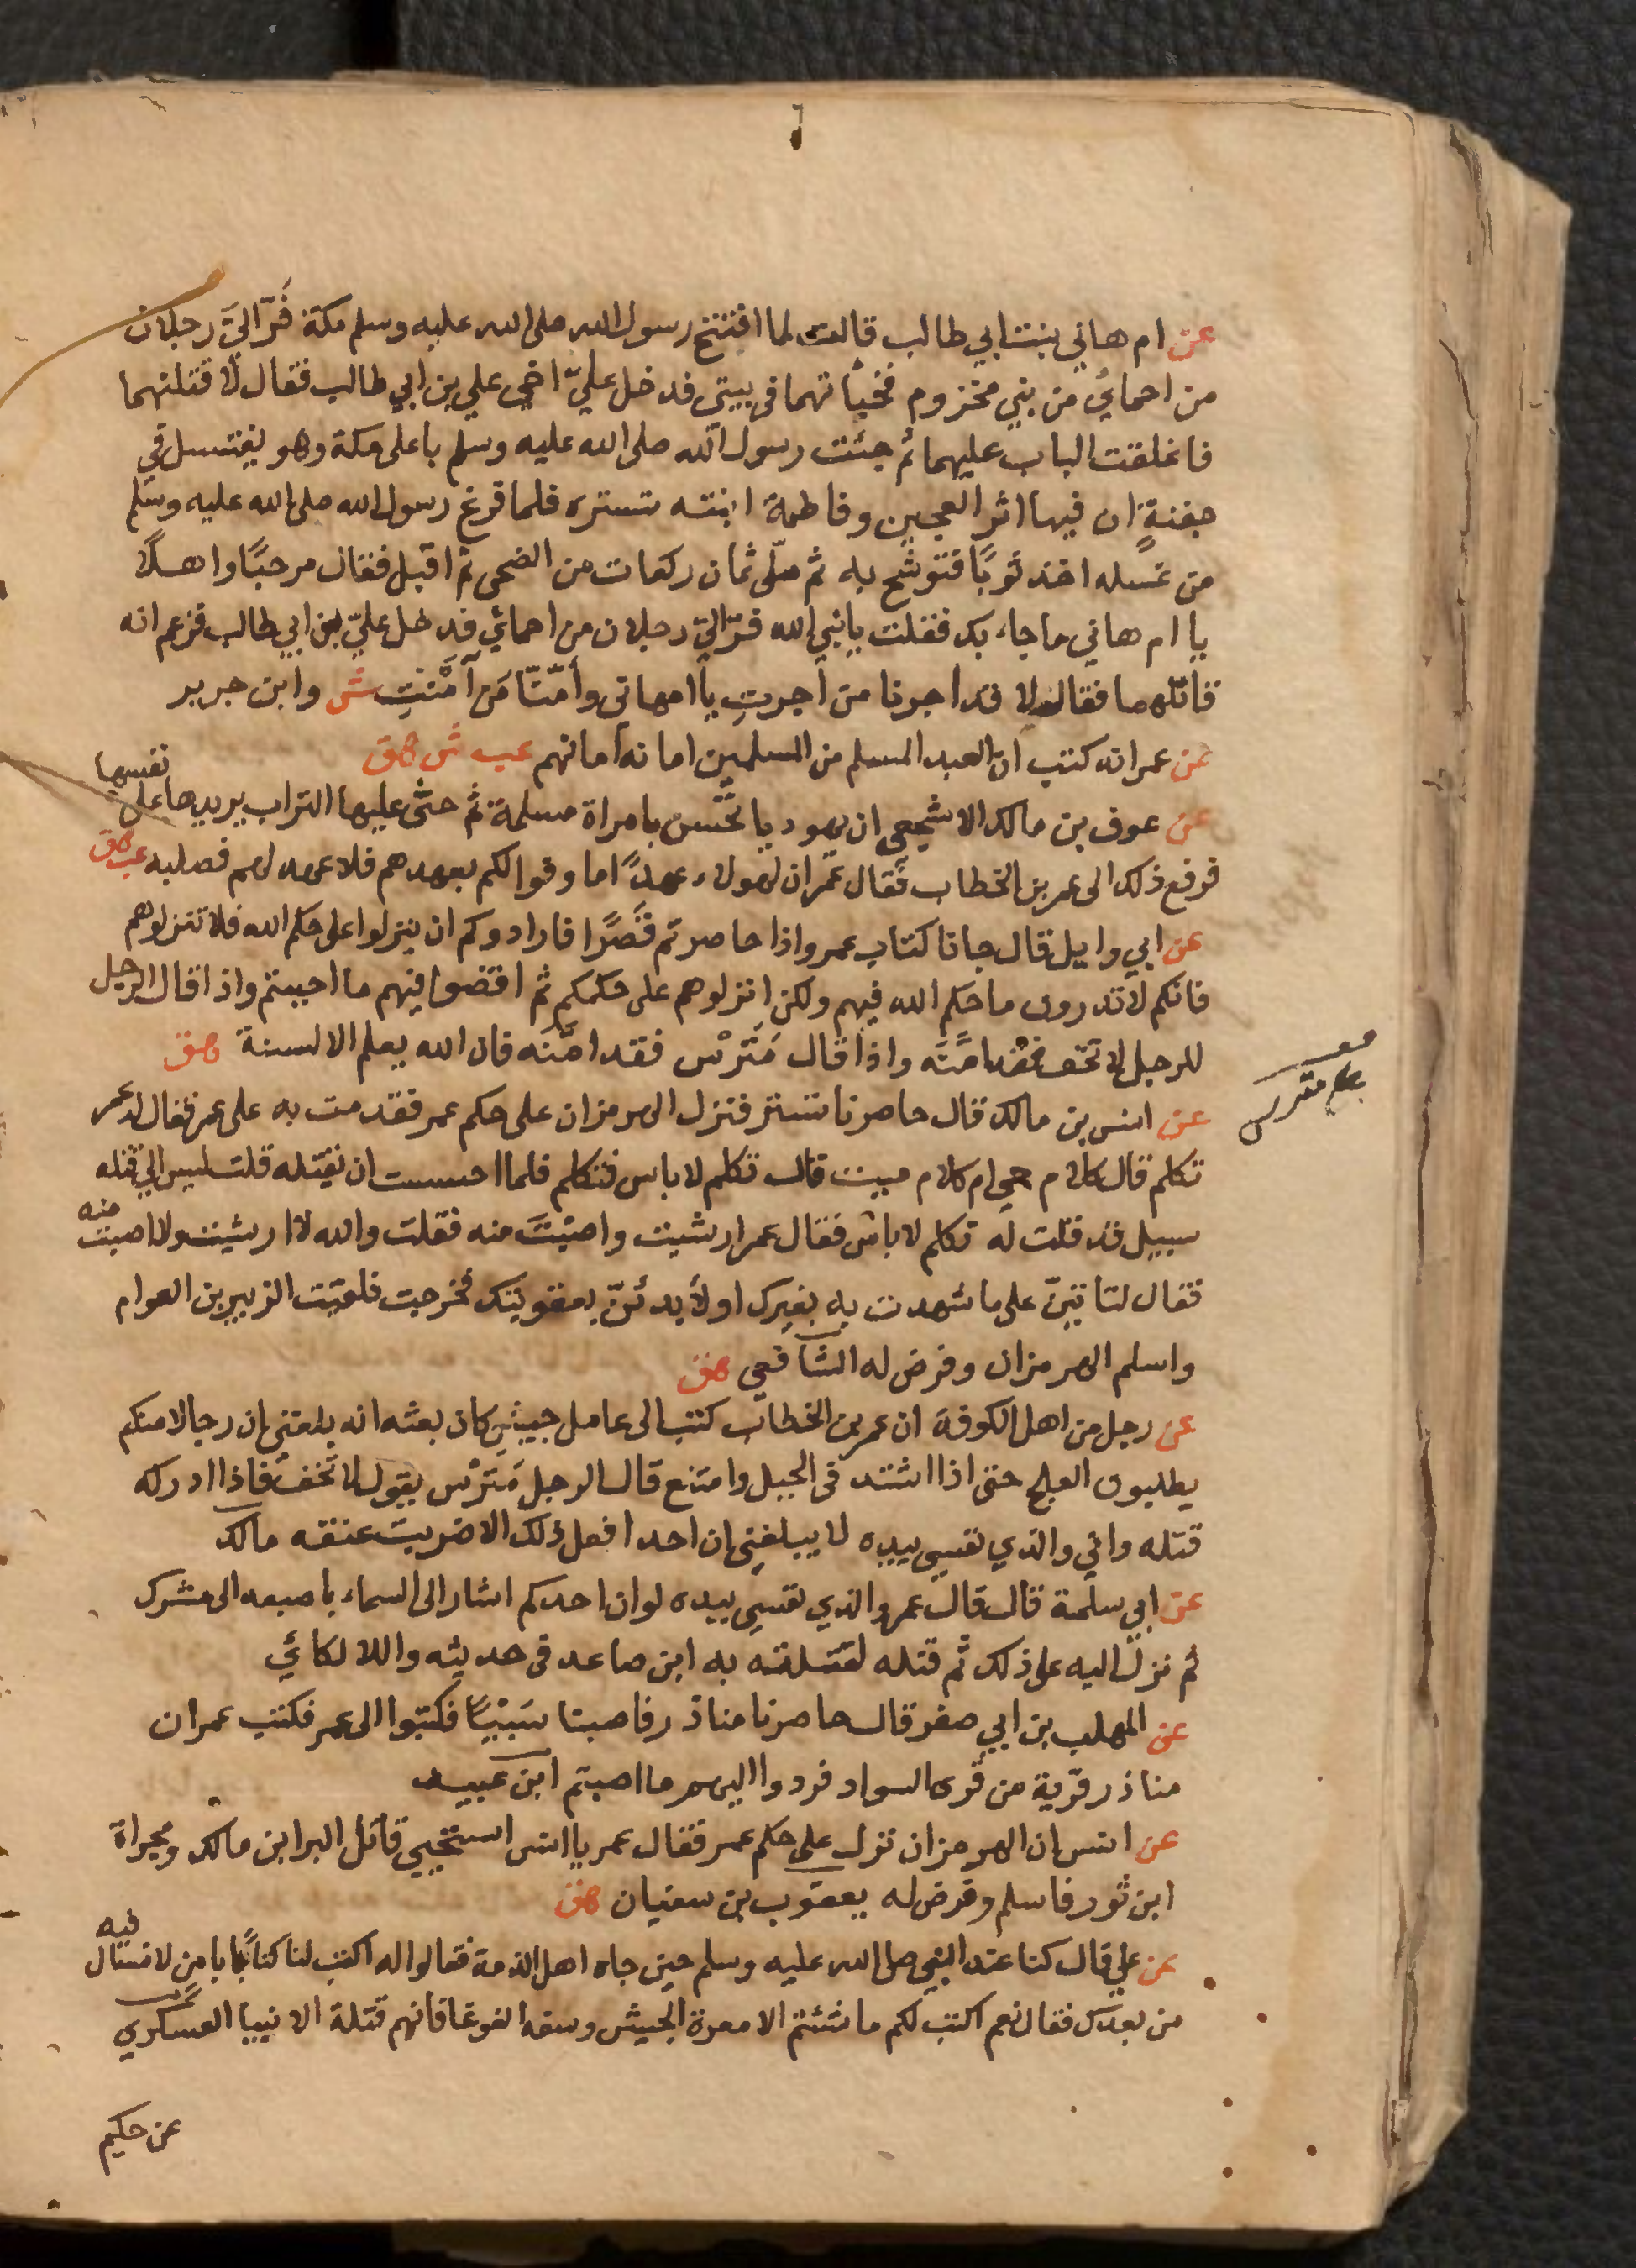 عن ام هاني بنت ابي طالب قالت لما افتتح رسول الله صلى الله عليه وسلم مكة فَرّ اليَّ رجلان
من احمائي من بني مخزوم فخبأتهما في بيتي فدخل عليّ اخي علي بن ابي طالب فقال لا قتلنهما
فاغلقت الباب عليهما ثم جئت رسول الله صلى الله عليه وسلم باعلى مكة وهو يغتسل في
جفنةٍ ان فيها اثر العجين وفاطمة ابنته تستره فلما فرغ رسول الله صلى الله عليه وسلم
من غسله اخذ ثوبًا فتوشح به ثم صلّى ثمان ركعات من الضحى ثم اقبل فقال مرحبًا واهلًا
يا ام هاني ما جاء بك فقلت يا نبي الله فرّ اليّ رجلان من احمائي فدخل عليّ بن ابي طالب فزعم انه
قاتلهما فقال لا قد اجرنا من اجرتِ يا ام هاني وأمّنّا مَن أمّنتِ ش وابن جرير
عن عمر انه كتب ان العبد المسلم من المسلمين امانه أمانهم عب ش هق
عن عوف بن مالك الاشجعي ان يهوديا نخّس بامراة مسلمة ثم حثى عليها التراب يريدها على نفسها
فرفع ذلك الى عمر بن الخطاب فقال عمر ان لهولاء عهدًا ما وفوا لكم بعهدهم فلا عهد لهم فصلبه عب هق
عن ابي وايل قال جانا كتاب عمر واذا حاصرتم قَصرًا فارادوكم ان ينزلوا على حكم الله فلا تنزلوهم
فانكم لا تدرون ما حكم الله فيهم ولكن انزلوهم على حكمكم ثم اقضوا فيهم ما احببتم واذا قال الرجل
للرجل لا تخف فقد امّنَه واذا قال مَتَرْس فقد امَّنَه فان الله يعلم الالسنة هق
مترس
عن انس بن مالك قال حاصرنا تستر فنزل الهرمزان على حكم عمر فقدمت به على عمر فقال له عمر
تكلم قال كلام حي ام كلام ميت قال تكلم لا باس فتكلم فلما احسست ان يقتله قلت ليس الى قتله
سبيل قد قلت له تكلم لا باس فقال عمر ارشيت واصبتَ منه فقلت والله لا ارشيت ولا اصبت منه
فقال لتاتينّ على ما شهدت به بغيرك او لأبدئنّ بعقوبتك فخرجت فلقيت الزبير بن العوام
واسلم الهرمزان وفرض له الشافعي هق
عن رجل من اهل الكوفة ان عمر بن الخطاب كتب الى عامل جيشٍ كان بعثه انه بلغني ان رجالا منكم
يطلبون العلج حتى اذا اشتد في الجبل وامتنع قال الرجل مَتَرْس يقول لا تَخَف فاذا ادركه
قتله واني والذي نفسي بيده لا يبلغني ان احدا فعل ذلك الا ضربت عنقه مالك
عن ابي سلمة قال قال عمر والذي نفسي بيده لو ان احدكم اشار الى السماء باصبعه الى مشرك
ثم نزل اليه على ذلك ثم قتله لقتلته به ابن صاعد في حديثه واللالكائي
عن المهلب بن ابي صفر قال حاصرنا مناذر فاصبنا سَبْيًا فكتبوا الى عمر فكتب عمر ان
مناذر قرية من قُرى السواد فردوا اليهم ما اصبتم ابن عبيد
عن انس ان الهرمزان نزل على حكم عمر فقال عمر يا انس استحيي قاتل البرا ابن مالك ومجزاة
ابن ثور فاسلم وفرض له يعقوب بن سفيان هق
عن علي قال كنا عند النبي صلى الله عليه وسلم حين جاه اهل الذمة فقالوا له اكتب لنا كتابًا بامنِ لا نسال فيه
من بعدك فقال نعم اكتب لكم ما شئتم الا معرة الجيش وسفه الغوغا فانهم قتلة الانبيا العسكري
عن حكيم